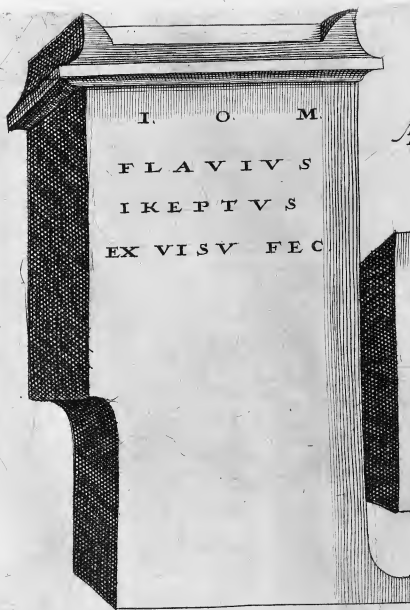 I. O. M.
FLAVIVS
IKEPTVS
EX VISV FEC